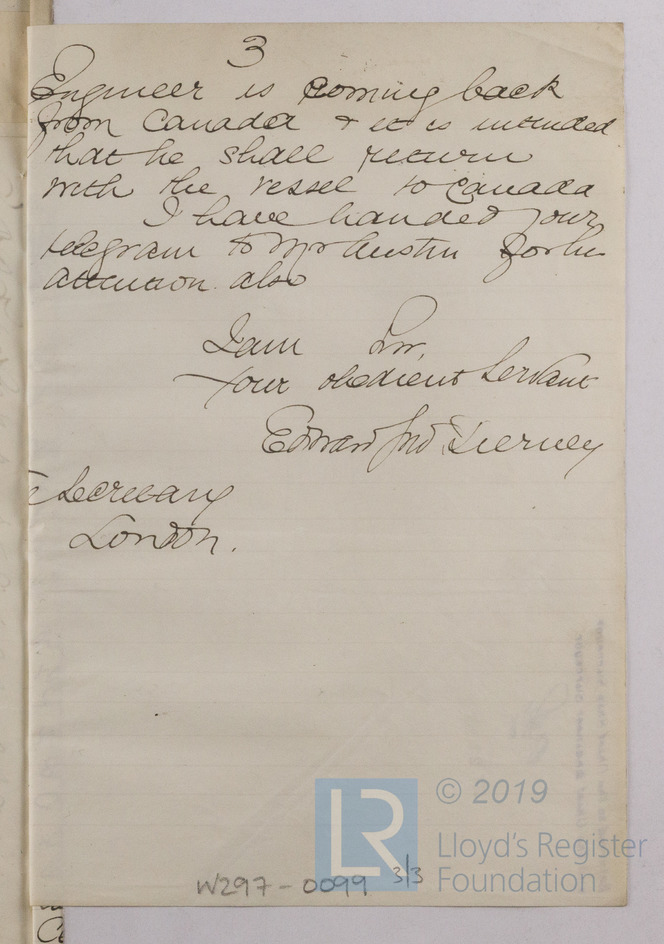 3
Engineer is coming back
from Canada & it is intended
that he shall return
with the vessel to Canada
I have handed your
telegram to Mr Austin for his
attention also
I am Sir,
Your obedient Servant
Edward Tierney
Secretary
London.
© 2019
LR
Lloyd's Register
Foundation
W297-0099 3/3